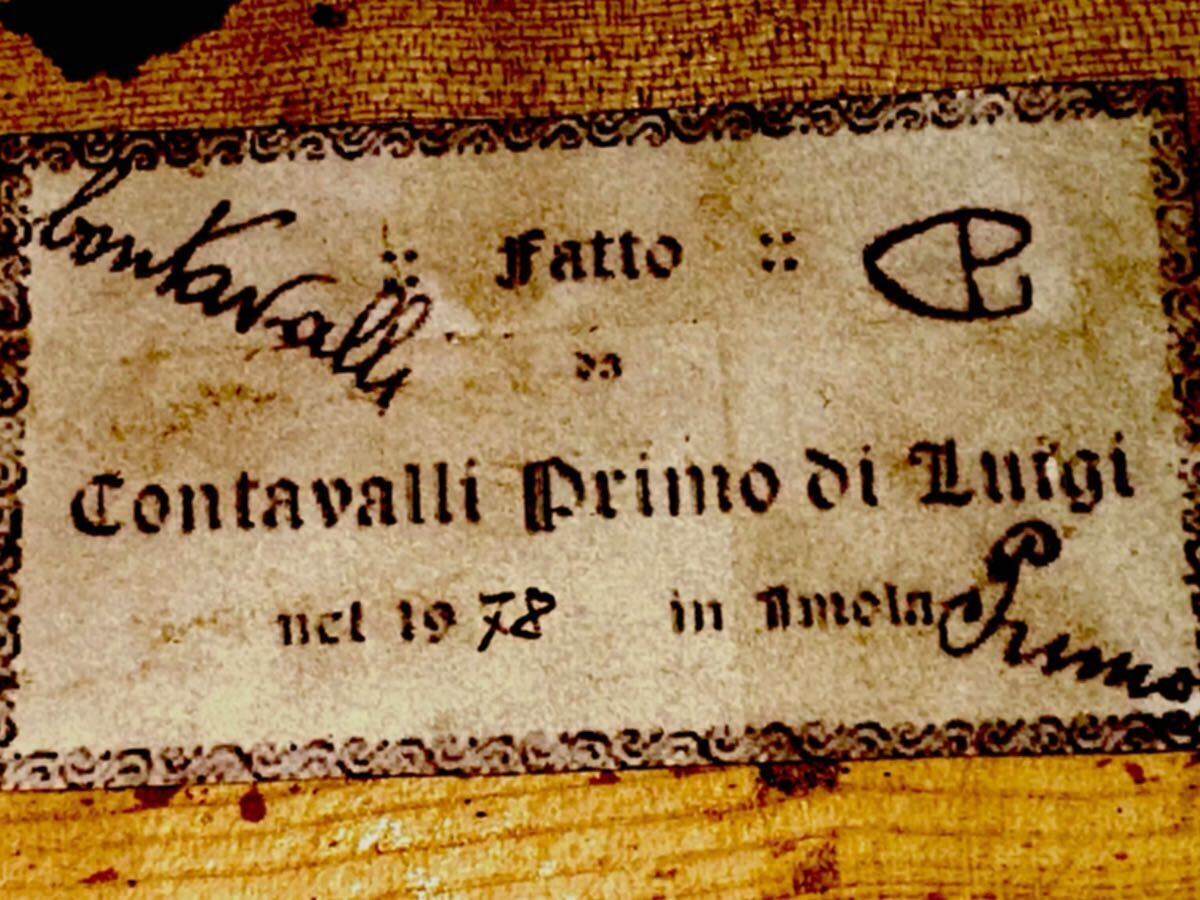 Contavalli
:: Fatto ::
CPL
da
Contavalli Primo di Luigi
nel 1978 in Imola
Primo